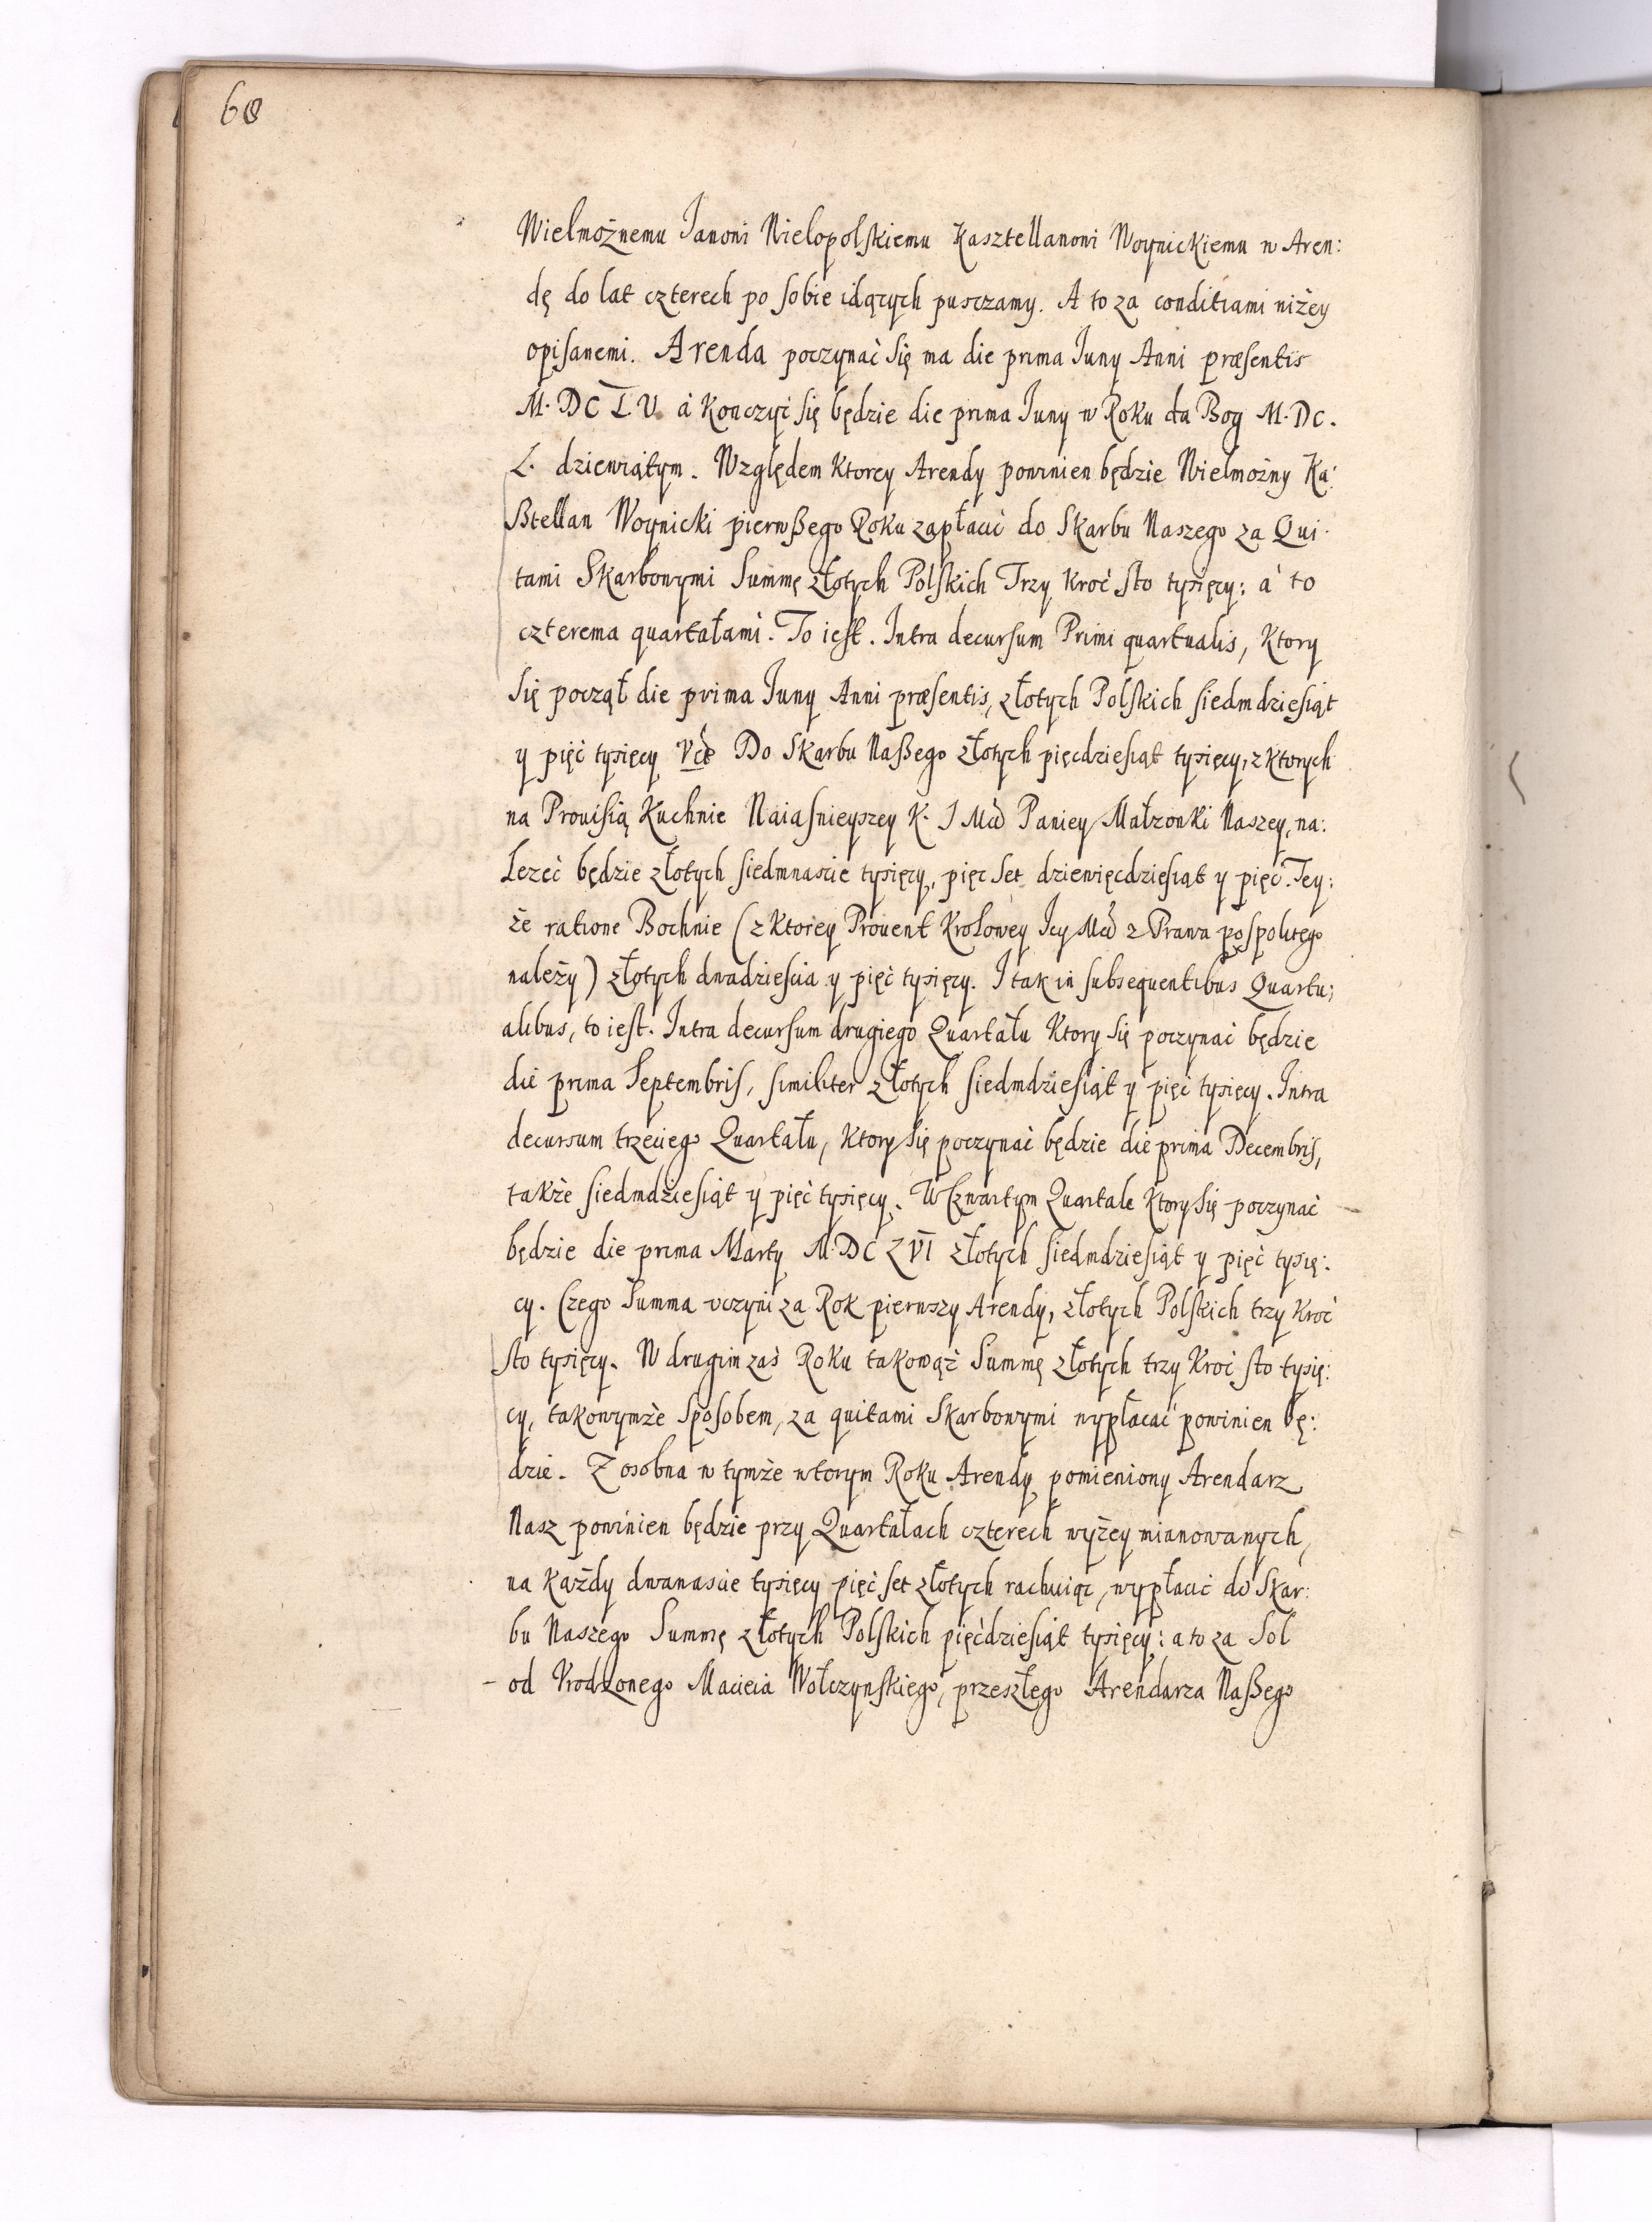 68
Wielmożnemu Janowi Wielopolskiemu Kasztellanowi Woynickiemu w Aren:
dę do lat czterech po sobie idących pusczamy. A to za conditiami niżey
opisanemi. Arenda poczynać się ma die prima Juny Anni præsentis
M. DC LV. á Konczyć się będzie die prima Juny w Roku da Bog M. DC.
L. dziewiątym. Względem Ktorey Arendy powinien będzie Wielmożny Ka:
sztellan Woynicki pierwßego Roku zapłacić do Skarbu Naszego za Qui:
tami Skarbowymi Summę złotych Polskich Trzy Kroć sto tysięcy: á to
czterema quartałami. To iest. Intra decursum Primi quartualis, Ktory
się począł die prima Juny Anni præsentis, złotych Polskich siedmdziesiąt
y pięć tysięcy Vtt Do Skarbu Naßego złotych pięcdziesiąt tysięcy, z Ktorych
na Prouisią Kuchnie Naiasnieyszey K. J Mći Paniey Małzonki Naszey, na:
lezeć będzie złotych siedmnascie tysięcy, pięc set dziewięcdziesiąt y pięć. Tey:
że ratione Bochnie (z Ktorey Prouent Krolowey Jey Mći z Prawa pospolitego
należy) złotych dwadziescia y pięć tysięcy. I tak in subsequentibus Quartu:
alibus, to iest. Intra decursum drugiego Quartału Ktory się poczynać będzie
die prima Septembris, similiter złotych siedmdziesiąt y pięć tysięcy. Intra
decursum trzeciego Quartału, Ktory się poczynać będzie die prima Decembris,
także siedmdziesiąt y pięć tysięcy. W Czwartym Quartale Ktory się poczynać
będzie die prima Marty M. DC LVI złotych siedmdziesiąt y pięć tysię:
cy. Czego Summa vczyni za Rok pierwszy Arendy, złotych Polskich trzy Kroć
sto tysięcy. W drugim zaś Roku takowąż Summę złotych trzy Kroć sto tysię:
cy, takowymże sposobem, za quitami Skarbowymi wypłacać powinien bę:
dzie. Z osobna w tymże wtorym Roku Arendy pomieniony Arendarz
Nasz powinien będzie przy Quartałach czterech wyżey mianowanych,
na Każdy dwanascie tysięcy pięć set złotych rachuiąc, wypłacić do Skar:
bu Naszego Summę złotych Polskich pięćdziesiąt tysięcy: a to za Sol
od Vrodzonego Macieia Wołczynskiego, przeszłego Arendarza Naßego